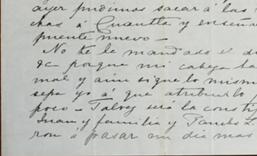 ayer pudimos sacar á las
chas á Cuautla y enseñar
puente nuevo.
No te he mandado el di
&c porque mi cabeza ha
mal y aun sigue lo mismo
sepa yo á que atribuirlo
poco. Talvez será la consti
Juan y familia y Pancho L
ron á pasar un dia mas